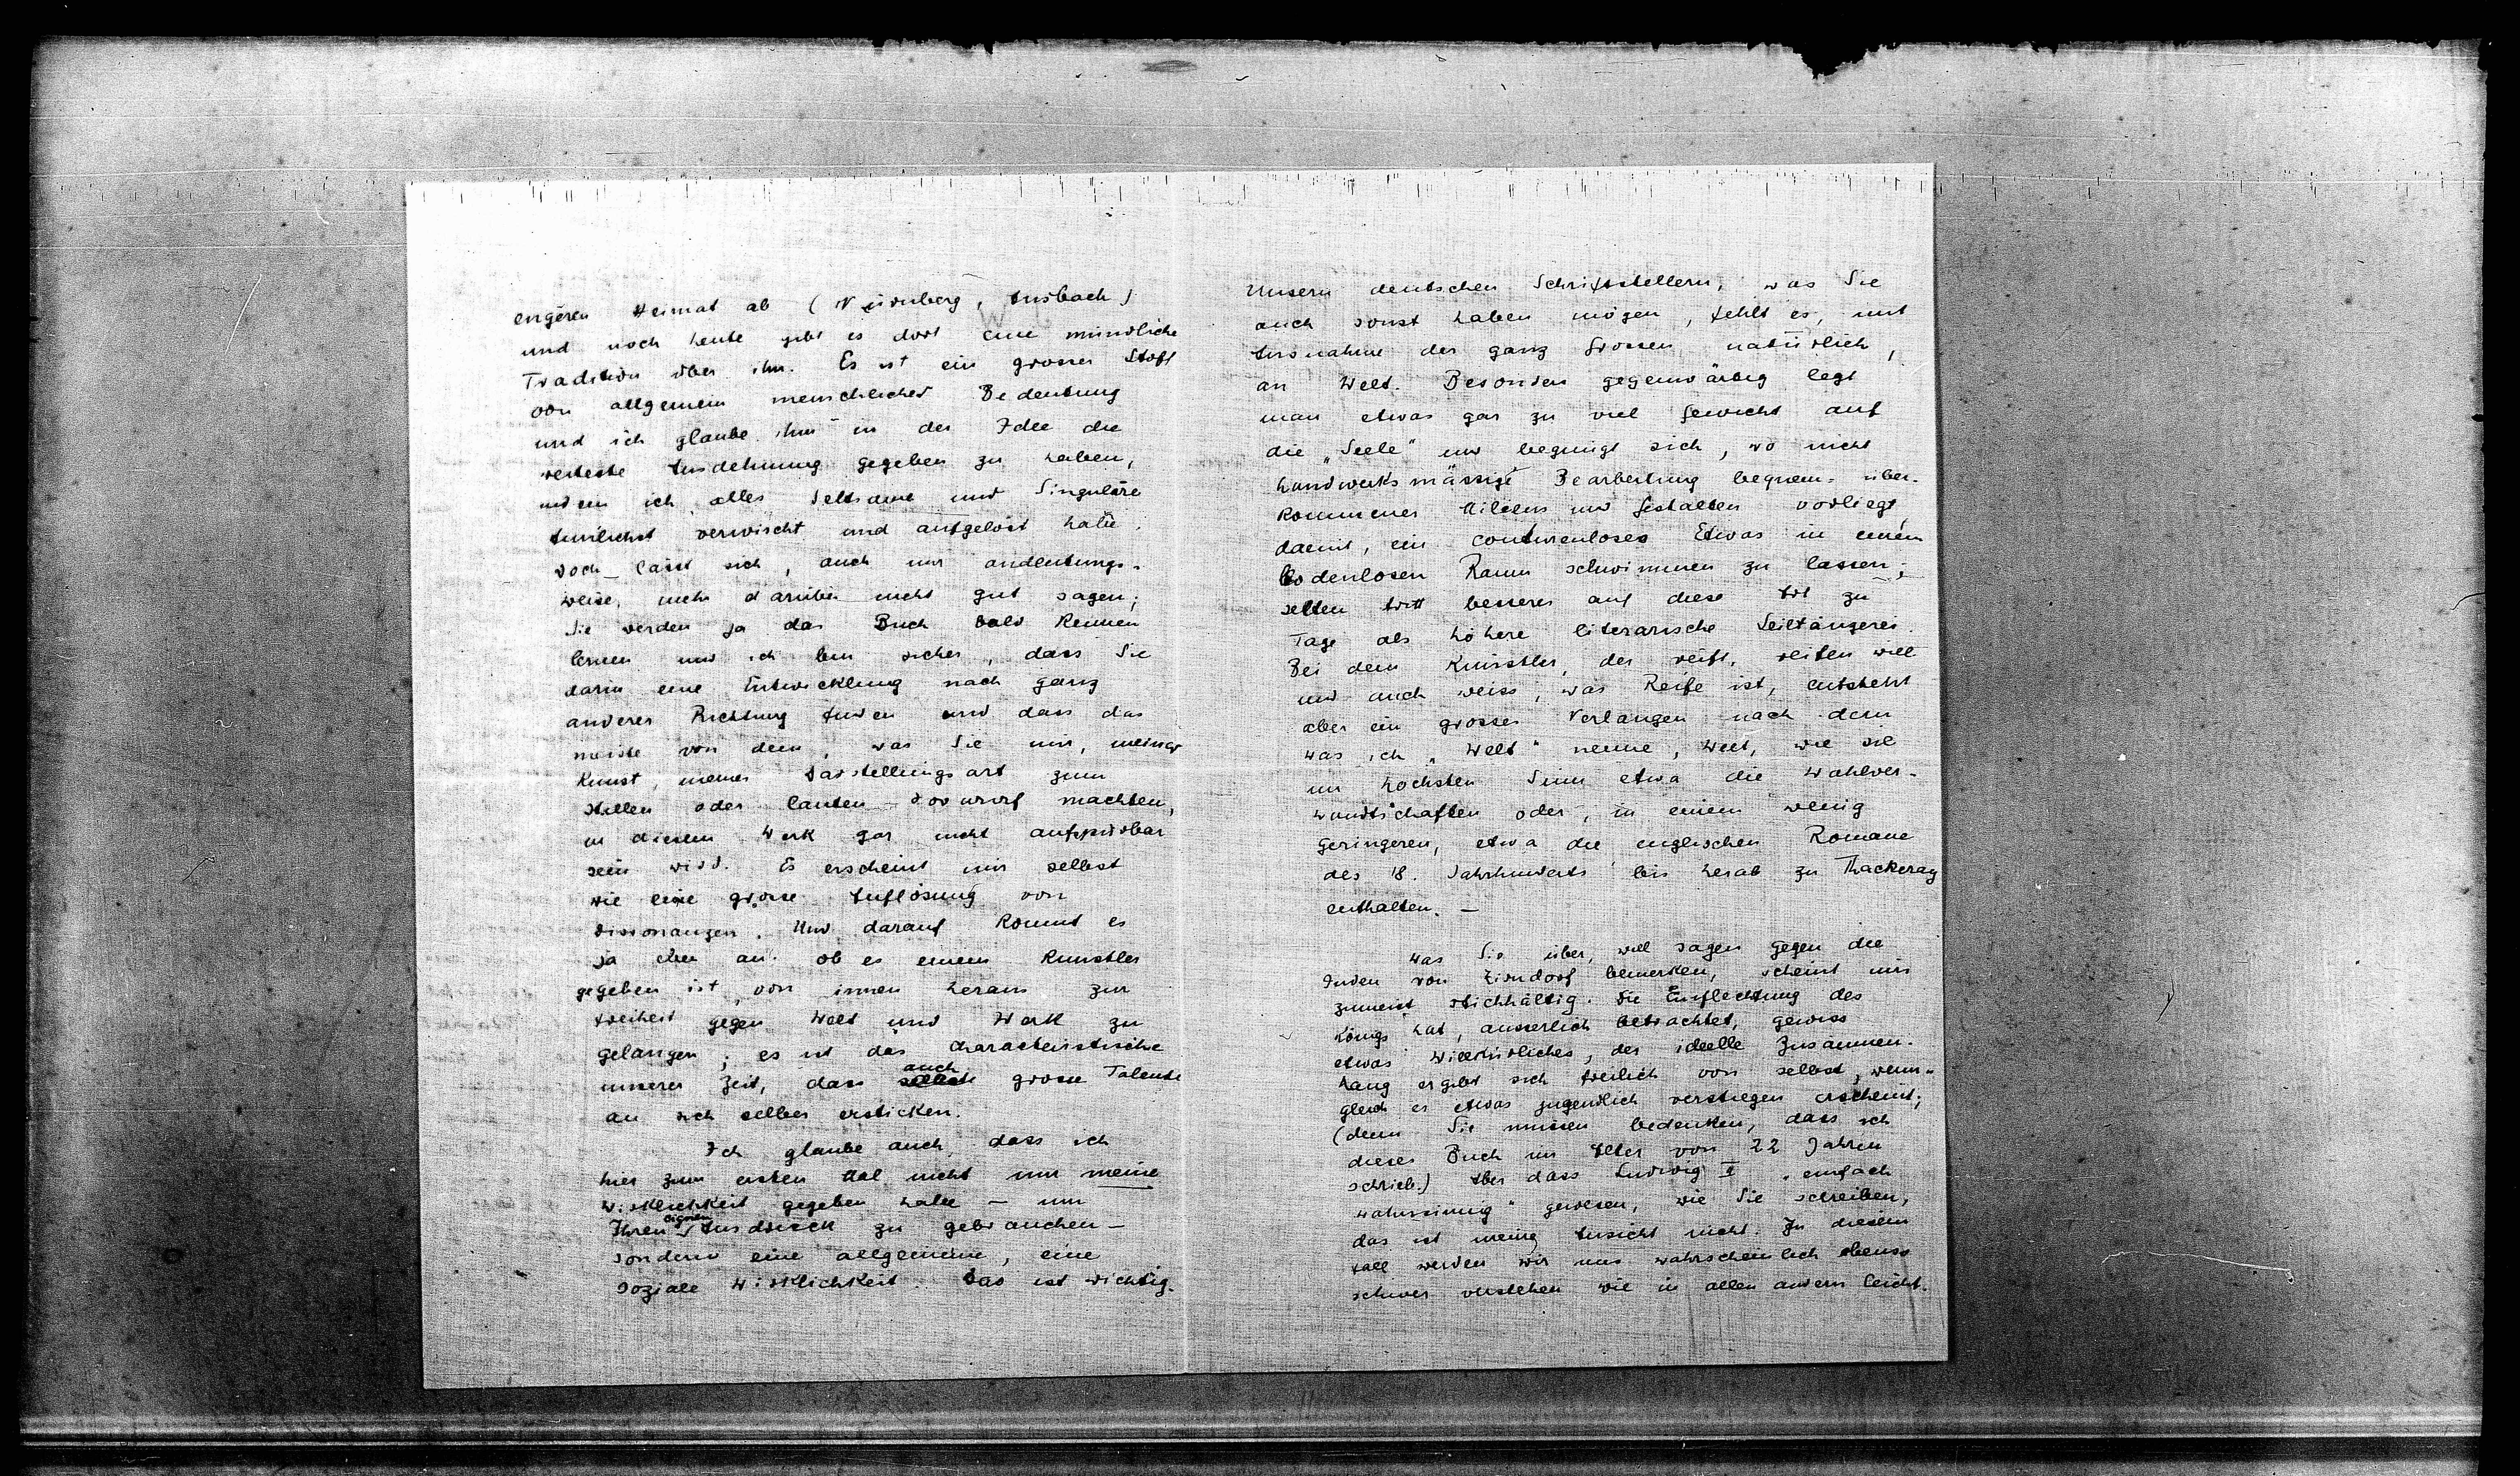 engeren Heimat ab (Nürnberg, Ansbach)
und noch heute gibt es dort eine mündliche
Tradition über ihn. Es ist ein grosser Stoff
von allgemein menschlicher Bedeutung
und ich glaube ihm in der Idee die
weiteste Ausdehnung gegeben zu haben,
indem ich alles Seltsame und Singuläre
tunlichst verwischt und aufgelöst habe.
Doch lässt sich, auch nur andeutungs-
weise, mehr darüber nicht gut sagen;
Sie werden ja das Buch bald kennen
lernen und ich bin sicher, dass Sie
darin eine Entwicklung nach ganz
anderer Richtung finden und dass das
meiste von dem, was Sie mir, meiner
Kunst, meiner Darstellungsart zum
stillen oder lauten Vorwurf machten,
in diesem Werk gar nicht aufspürbar
sein wird. Es erscheint mir selbst
wie eine grosse Auflösung von
Dissonanzen. Und darauf kommt es
ja eben an: ob es einem Künstler
gegeben ist, von innen heraus zur
Freiheit gegen Welt und Werk zu
gelangen; es ist das charakteristische
unserer Zeit, dass auch grosse Talente
an sich selber ersticken.
Ich glaube auch, dass ich
hier zum ersten Mal nicht nur meine
Wirklichkeit gegeben habe – um
Ihren eignen Ausdruck zu gebrauchen –
sondern eine allgemeine, eine
soziale Wirklichkeit. Das ist wichtig.
Unsern deutschen Schriftstellern, was Sie
auch sonst haben mögen, fehlt es, mit
Ausnahme der ganz Grossen natürlich,
an Welt. Besonders gegenwärtig legt
man etwas gar zu viel Gewicht auf
die „Seele" und begnügt sich, wo nicht
handwerksmässige Bearbeitung bequem-über-
kommener Milieus und Gestalten vorliegt,
damit, ein conturenloses Etwas in einem
bodenlosen Raum schwimmen zu lassen;
selten tritt besseres auf diese Art zu
Tage als höhere literarische Seiltänzerei.
Bei dem Künstler, der reift, reifen will
und auch weiss, was Reife ist, entsteht
aber ein grosses Verlangen nach dem
was ich „Welt" nenne, Welt, wie sie
im höchsten Sinn etwa die Wahlver-
wandtschaften oder, in einem wenig
geringeren, etwa die englischen Romane
des 18. Jahrhunderts bis herab zu Thackeray
enthalten. –
Was Sie über, will sagen gegen die
Juden von Zirndorf bemerken, scheint mir
zumeist stichhältig. Die Einflechtung des
Königs hat, äusserlich betrachtet, gewiss
etwas Willkürliches, der ideelle Zusammen-
hang ergibt sich freilich von selbst, wenn-
gleich es etwas jugendlich verstiegen erscheint;
(denn Sie müssen bedenken, dass ich
dieses Buch im Alter von 22 Jahren
schrieb.) Aber dass Ludwig II „einfach
wahnsinnig" gewesen, wie Sie schreiben,
das ist meine Ansicht nicht. In diesem
Fall werden wir uns wahrscheinlich ebenso
schwer verstehen wie in allen andern leicht.